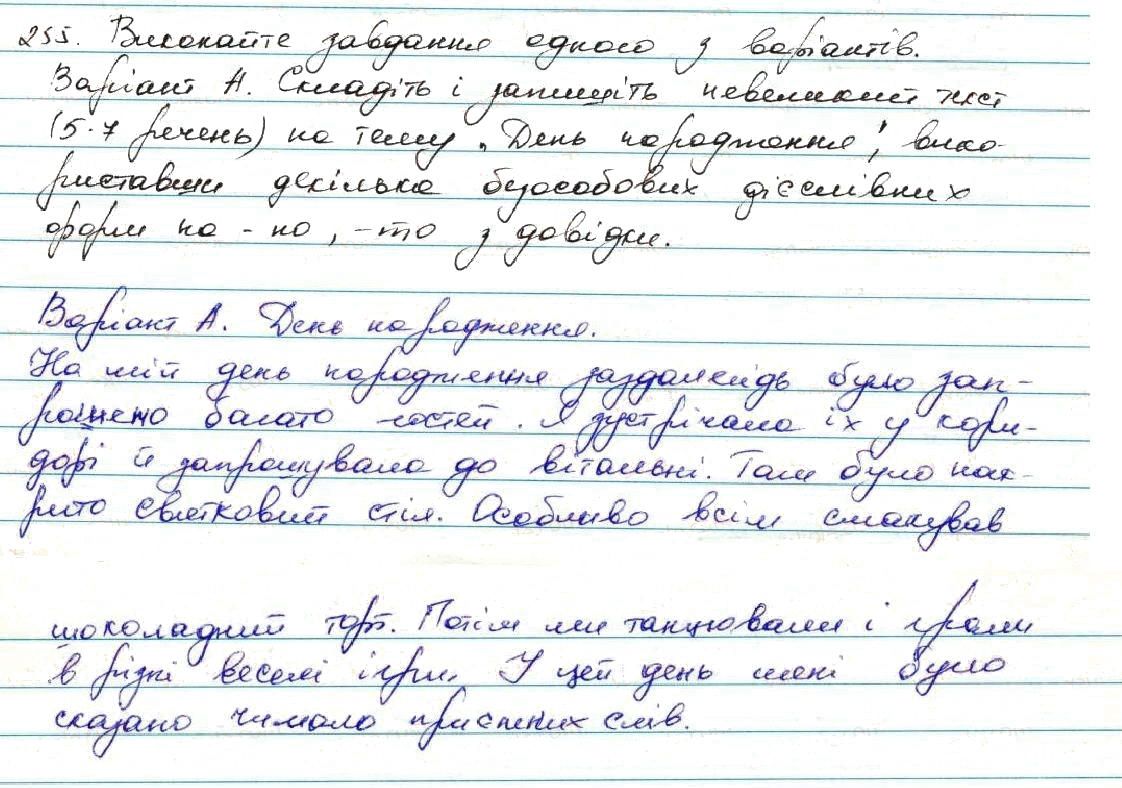 255. Виконайте завдання одного з варіантів.
Варіант А. Складіть і запишіть невеликий текст
(5-7 речень) на тему „День народження", вико-
риставши декілька безособових дієслівних
форм на -но, -то з довідки.
Варіант А. День народження.
На мій день народження заздалегідь було зап-
рошено багато гостей. Я зустрічала їх у кори-
дорі й запрошувала до вітальні. Там було нак-
рито святковий стіл. Особливо всім смакував
шоколадний торт. Потім ми танцювали і грали
в різні веселі ігри. У цей день мені було
сказано чимало приємних слів.